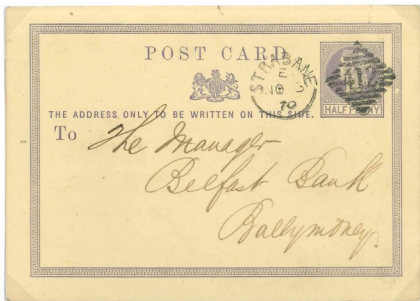 POST CARD
STRABANE
70
HALFPENNY
THE ADDRESS ONLY TO BE WRITTEN ON THIS SIDE.
To
The Manager
Belfast Bank
Ballymoney.